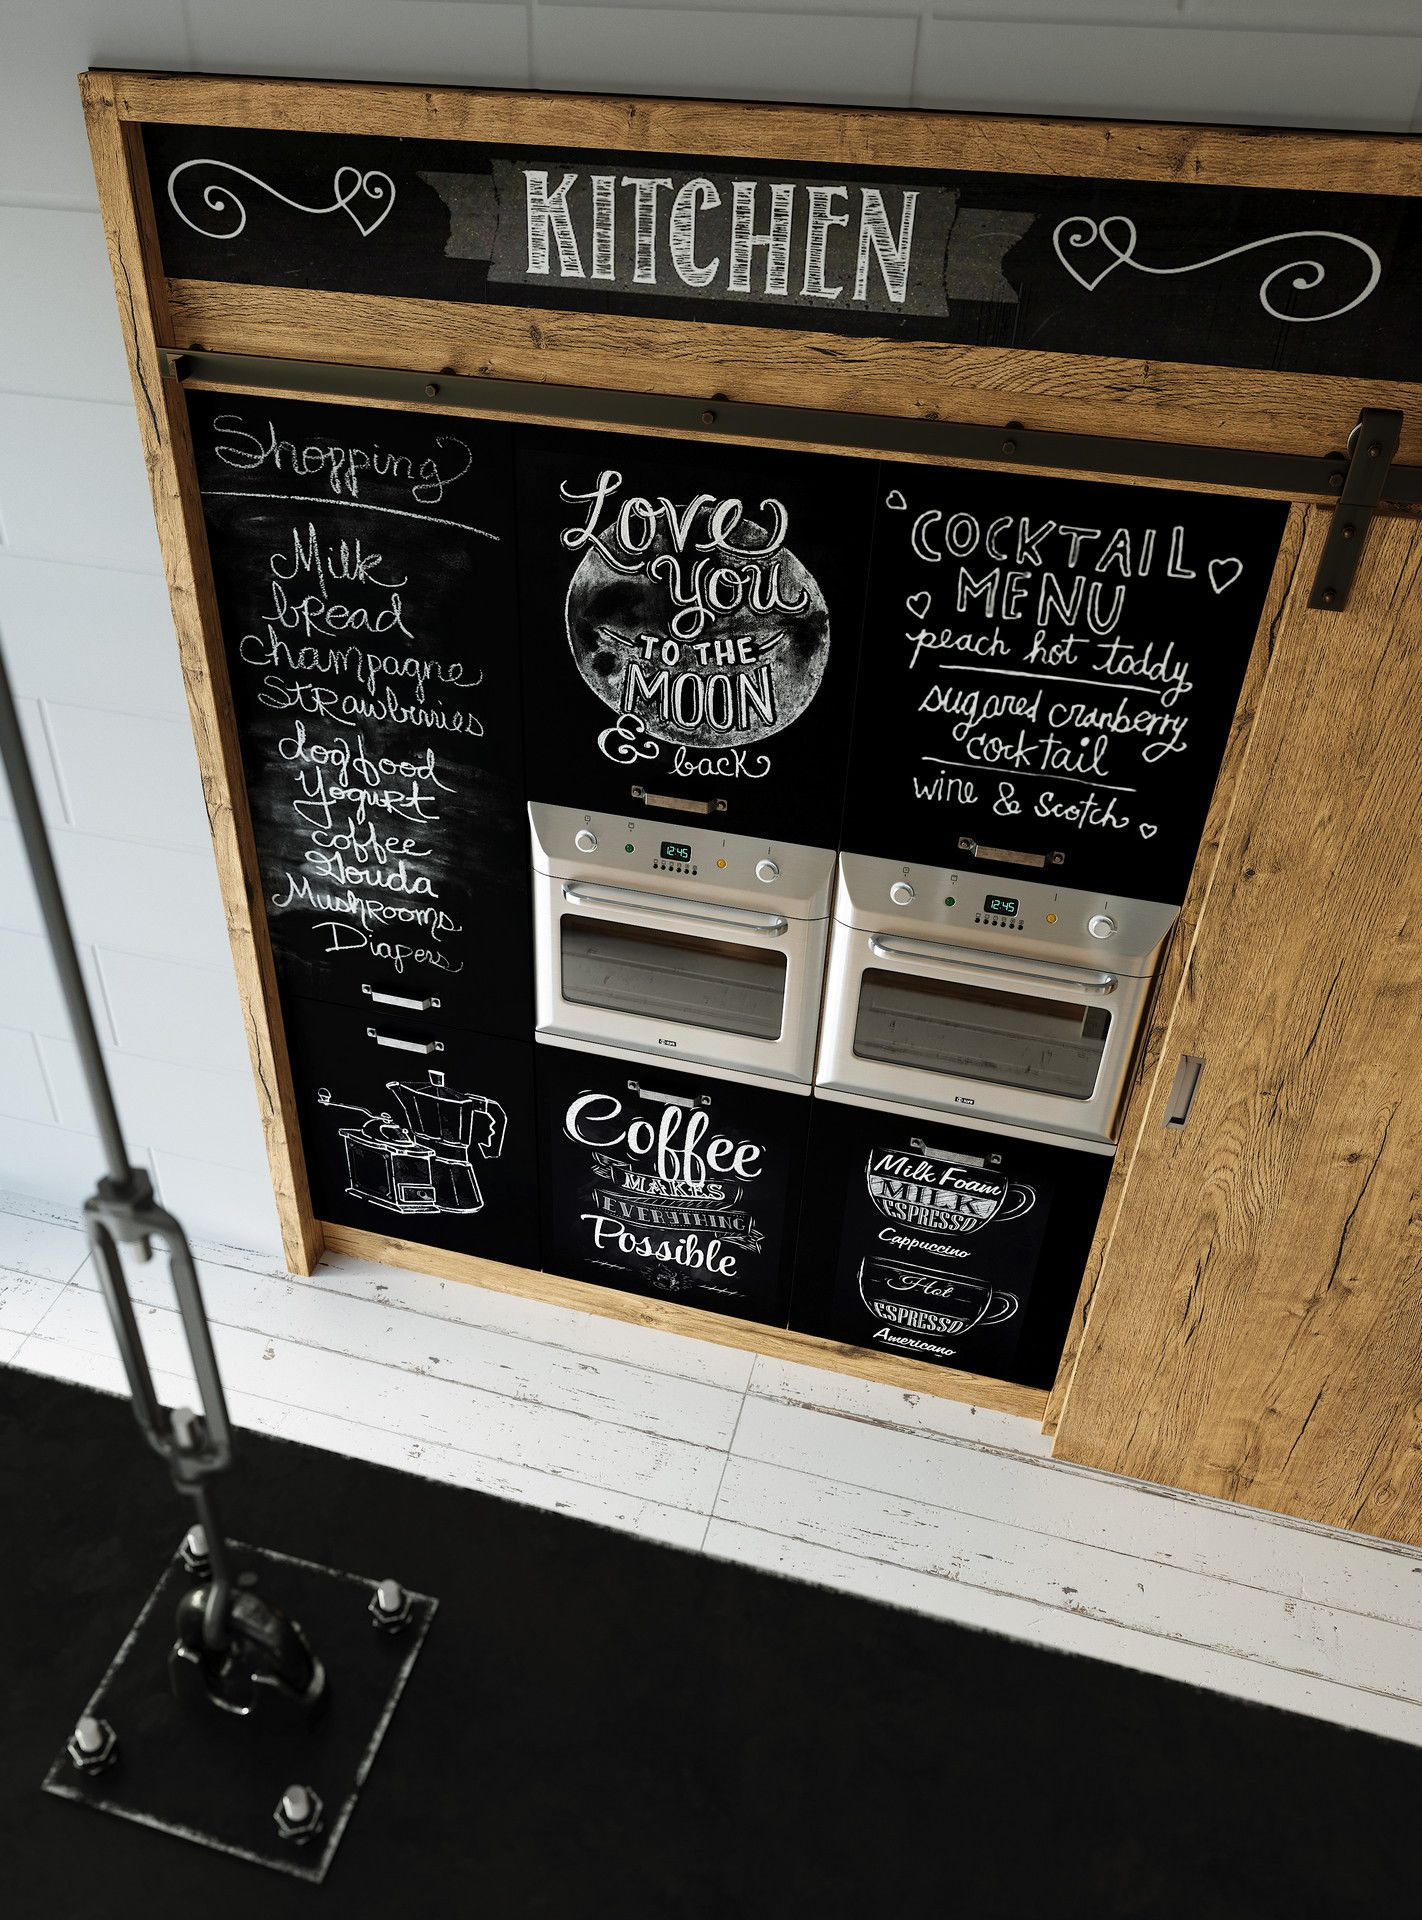 KITCHEN
Shopping
Milk
bread
champagne
Strawberries
dogfood
Yogurt
coffee
Gouda
Mushrooms
Diapers
Love
You
TO THE
MOON
& back
COCKTAIL
MENU
peach hot toddy
sugared cranberry
cocktail
wine & scotch
12:45
12:45
Coffee
MAKES
EVERYTHING
Possible
Milk Foam
MILK
ESPRESSO
Cappuccino
Hot
ESPRESSO
Americano